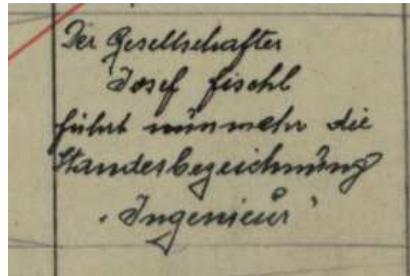 Der Gesellschafter
Josef Fischl
führt nunmehr die
Standesbezeichnung
"Ingenieur"